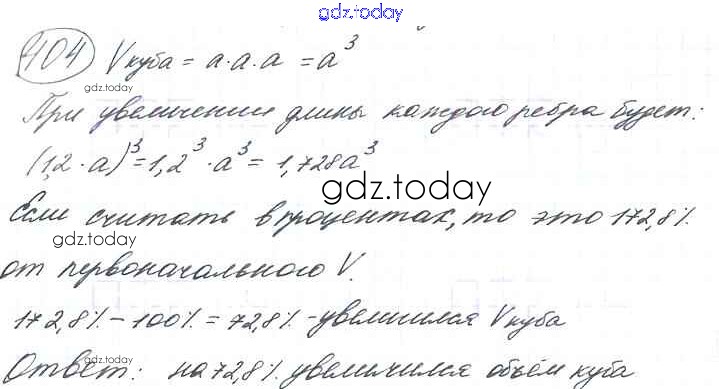 gdz.today
404 Vкуба = a·a·a = a³
gdz.today
При увеличении длины каждого ребра будет:
(1,2·a)³ = 1,2³·a³ = 1,728a³
gdz.today
Если считать в процентах, то это 172,8%
gdz.today
от первоначального V.
172,8% - 100% = 72,8% - увеличился Vкуба
Ответ: на 72,8% увеличился объём куба
gdz.today